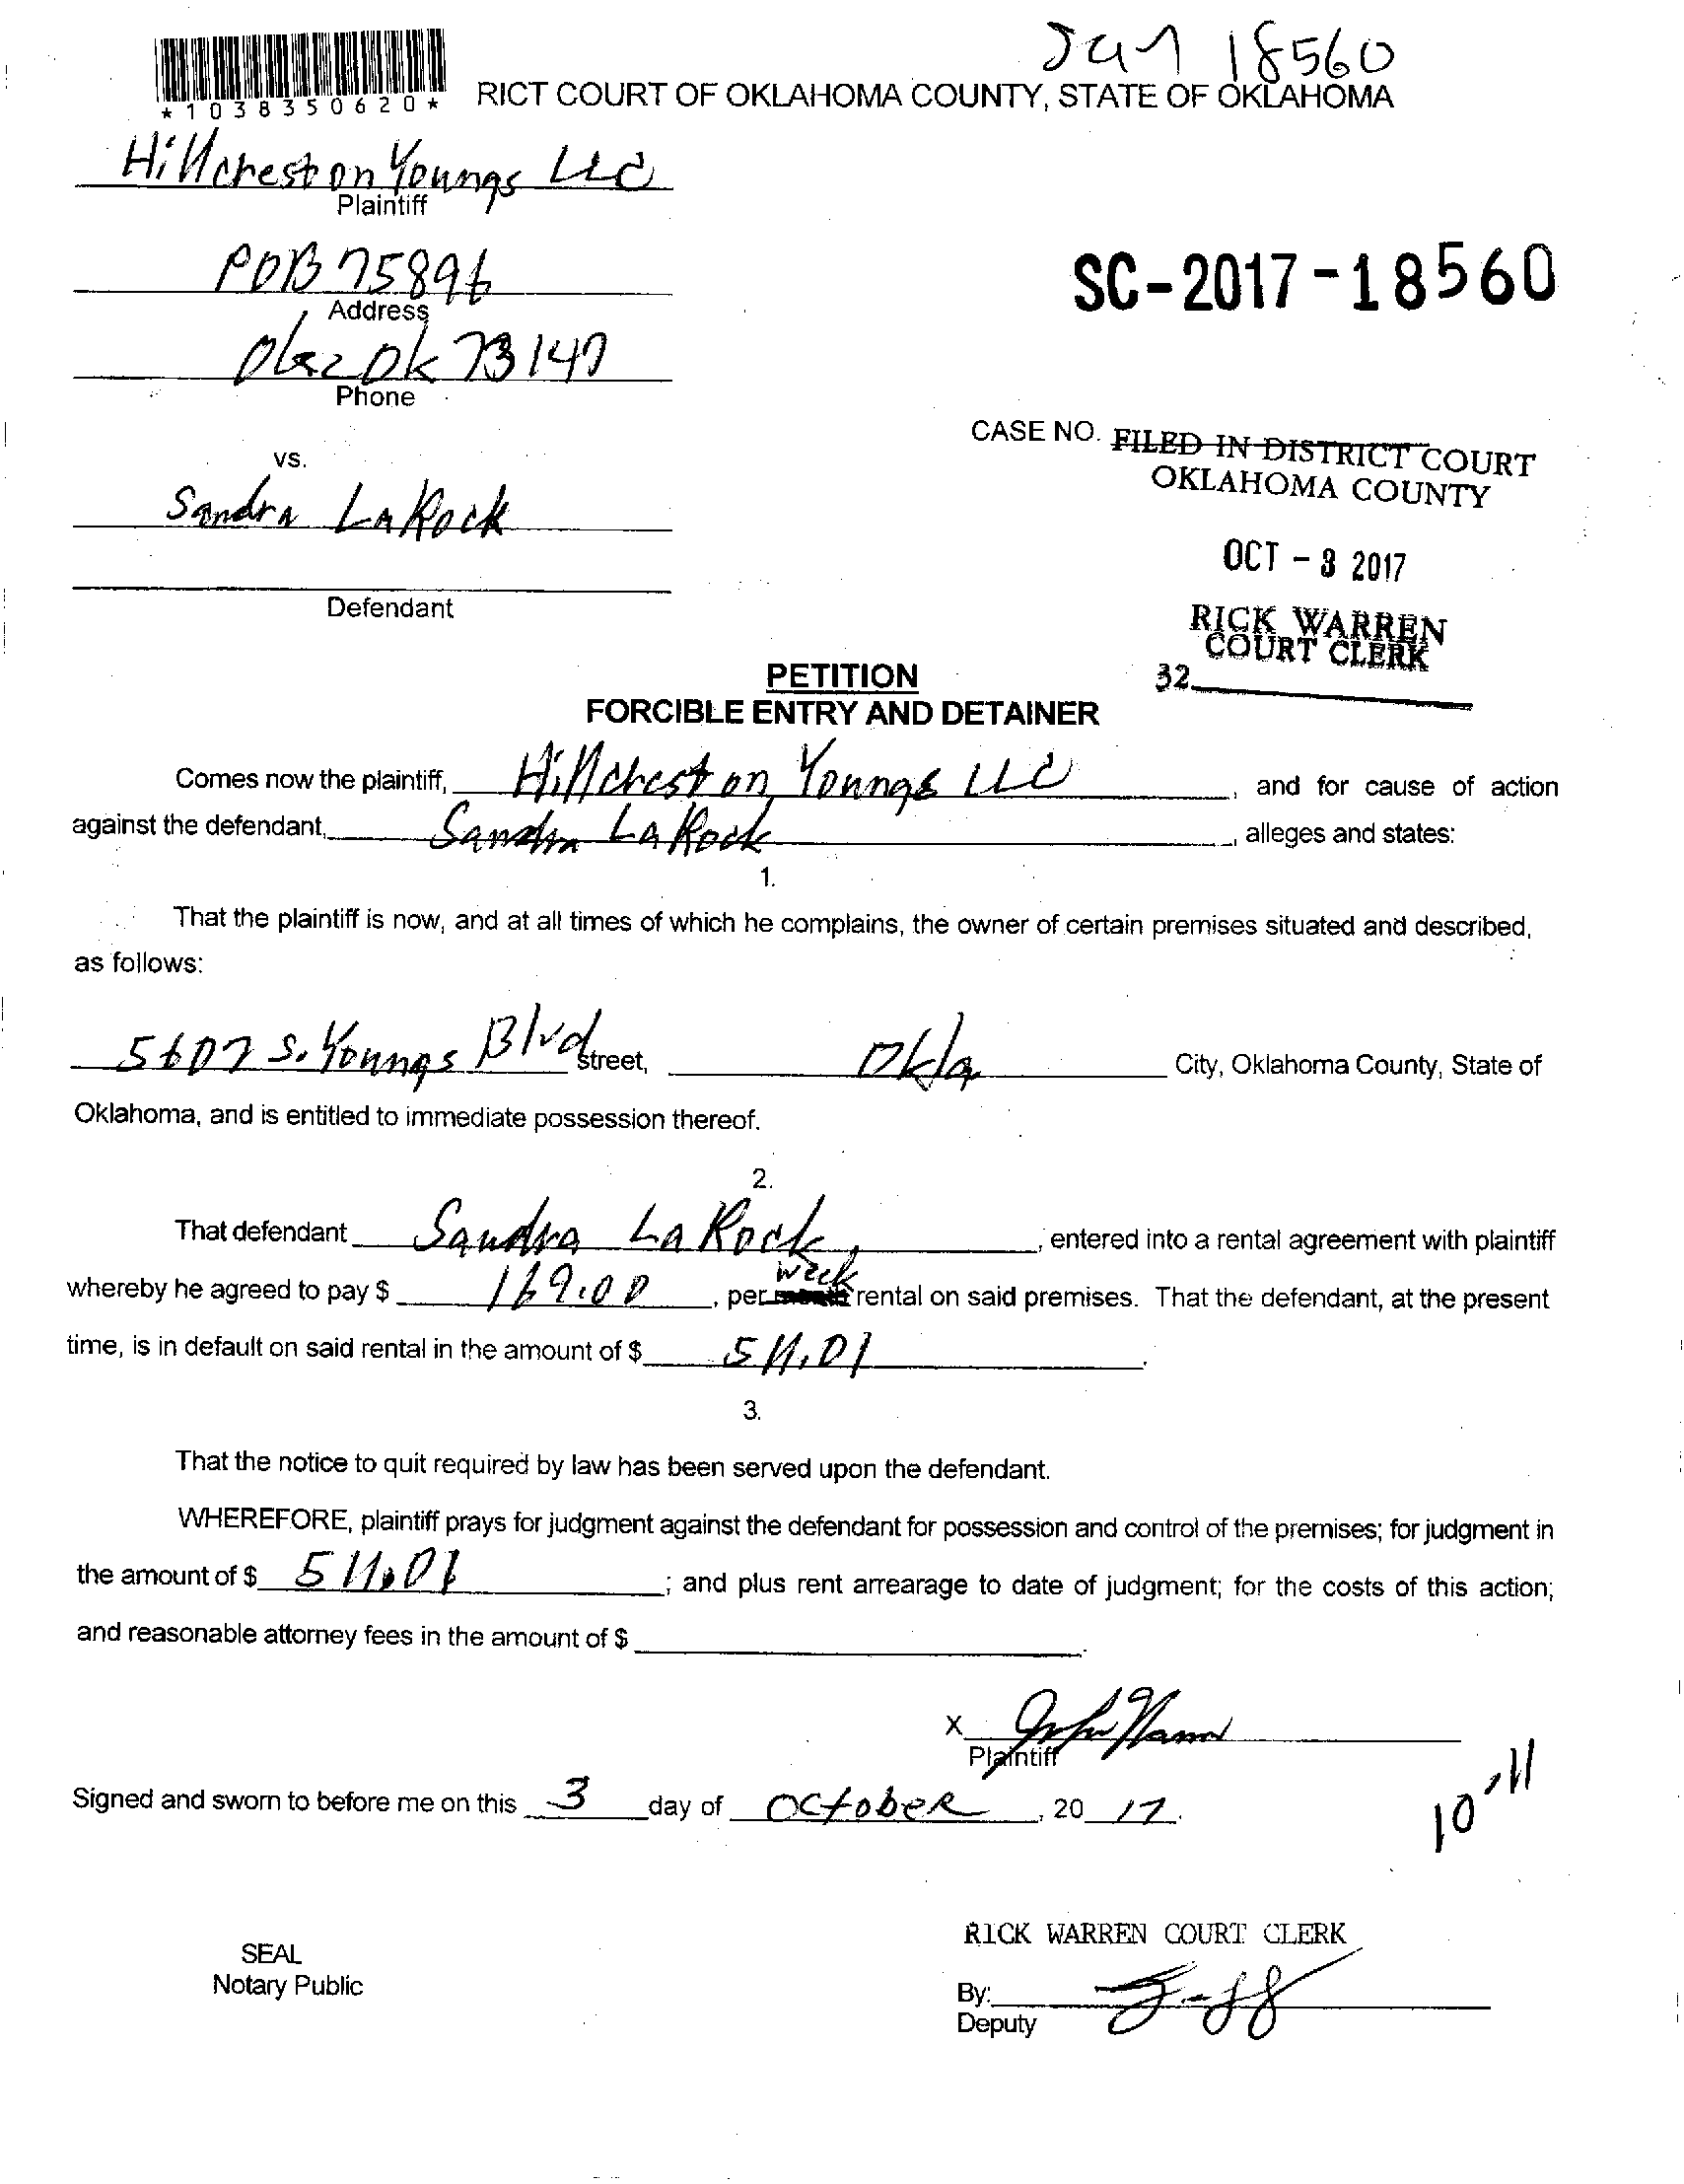 18560
*1038350620* RICT COURT OF OKLAHOMA COUNTY, STATE OF OKLAHOMA
Hillcrest on Youngs LLC
Plaintiff
POB 75896
Address
SC-2017-18560
Ok 73147
Phone
CASE NO. FILED IN DISTRICT COURT
OKLAHOMA COUNTY
vs.
Sandra LaRock
OCT - 3 2017
Defendant
RICK WARREN
COURT CLERK
32
PETITION
FORCIBLE ENTRY AND DETAINER
Comes now the plaintiff, Hillcrest on Youngs LLC, and for cause of action
against the defendant, Sandra LaRock, alleges and states:
1.
That the plaintiff is now, and at all times of which he complains, the owner of certain premises situated and described,
as follows:
5607 S. Youngs Blvd Street, Okla City, Oklahoma County, State of
Oklahoma, and is entitled to immediate possession thereof.
2.
That defendant Sandra LaRock, entered into a rental agreement with plaintiff
week
whereby he agreed to pay $ 169.00, per month rental on said premises. That the defendant, at the present
time, is in default on said rental in the amount of $ 511.01.
3.
That the notice to quit required by law has been served upon the defendant.
WHEREFORE, plaintiff prays for judgment against the defendant for possession and control of the premises; for judgment in
the amount of $ 511.01; and plus rent arrearage to date of judgment; for the costs of this action;
and reasonable attorney fees in the amount of $ .
X
Plaintiff
Signed and sworn to before me on this 3 day of October, 20 17.
10-11
RICK WARREN COURT CLERK
SEAL
Notary Public
By:
Deputy